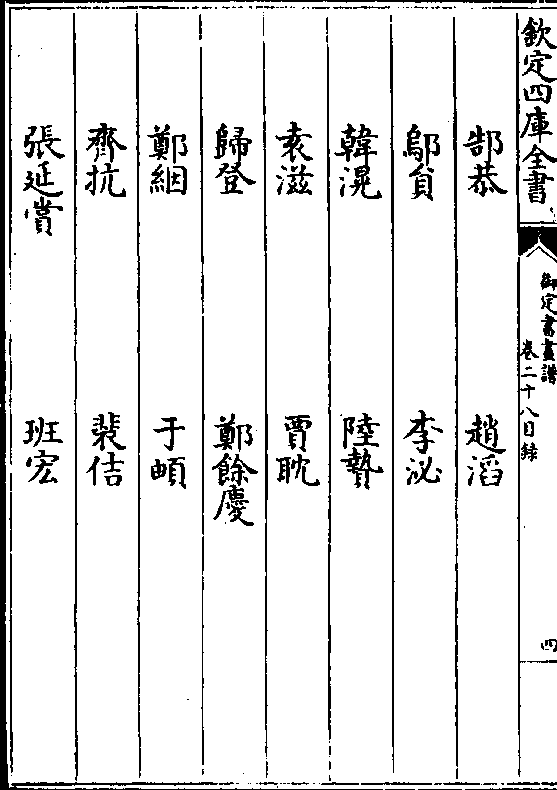 欽定四庫全書
御定書畫譜
卷二十八目錄
四
郜恭　趙滔
鄔貟　李泌
韓滉　陸贄
袁滋　賈耽
歸登　鄭餘慶
鄭絪　于頔
齊抗　裴佶
張延賞　班宏